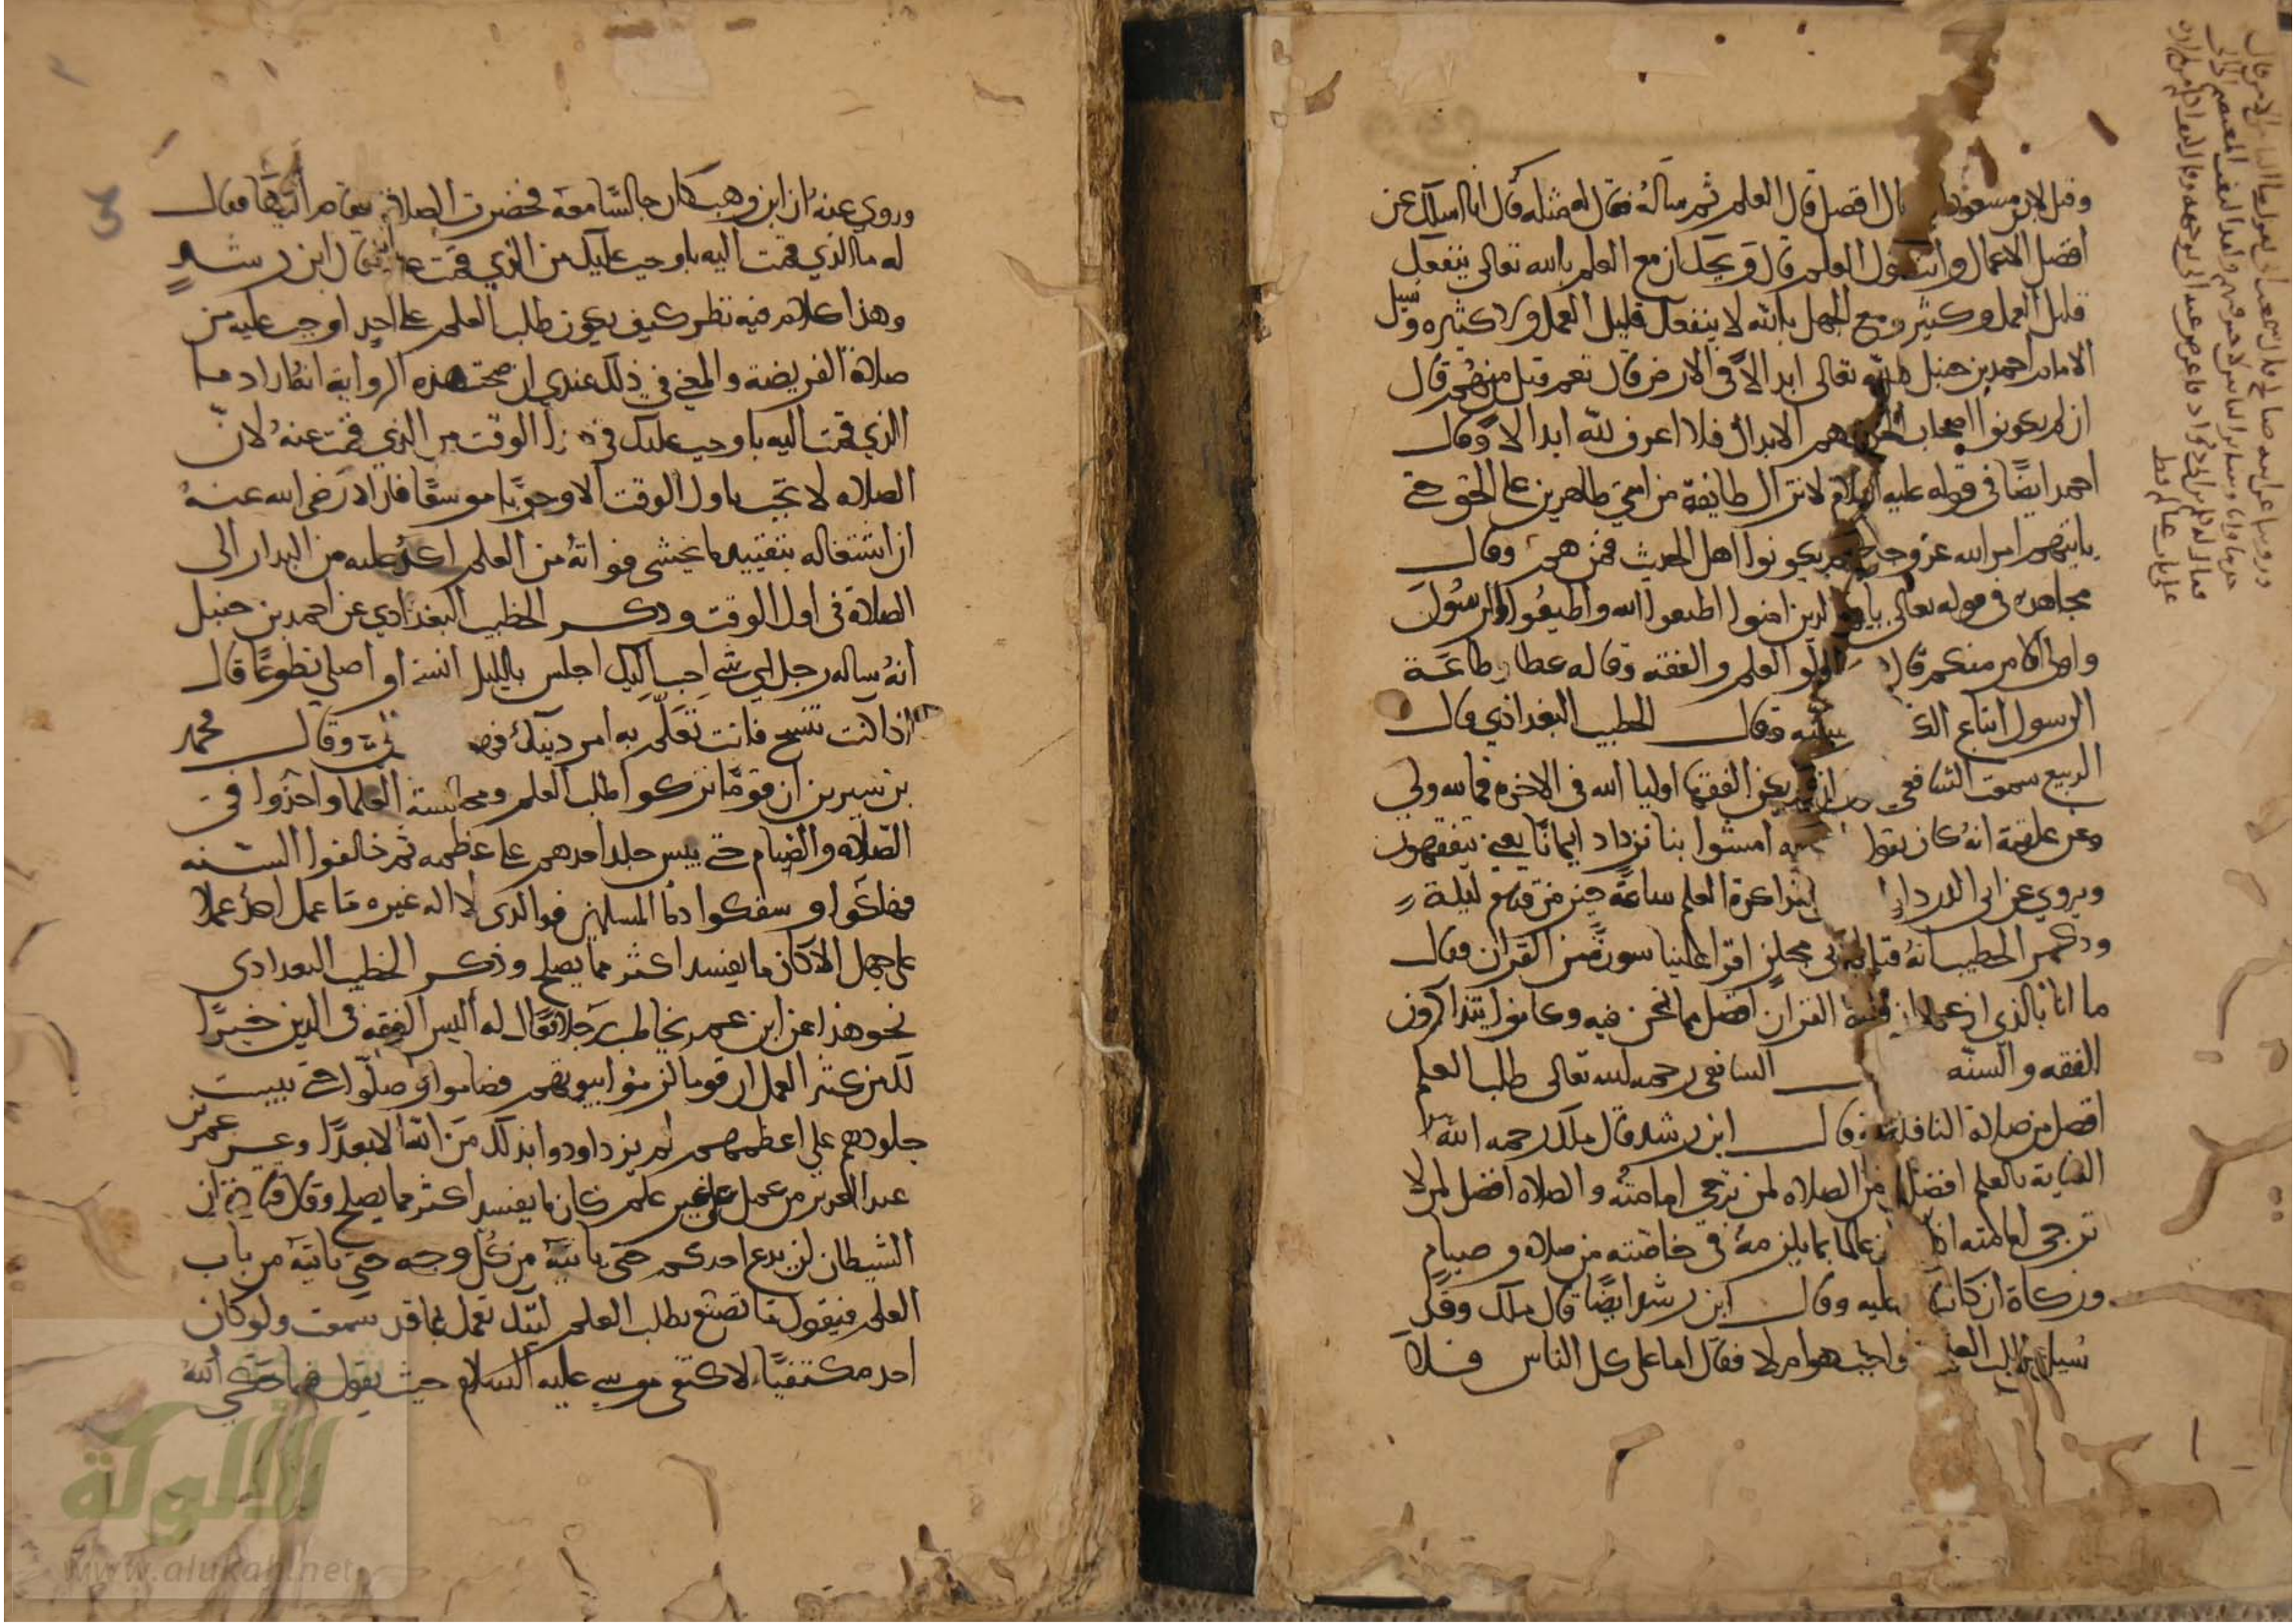 وقيل لابن مسعود ال افضل قال العلم ثم ساله فقال له مثله قال انا اسالك عن
افضل الاعمال وانت تقول العلم قال ويحك ان مع العلم بالله تعالى ينفعك
قليل العمل وكثيره ومع الجهل بالله لا ينفعك قليل العمل ولا كثيره وسيل
الامام احمد بن حنبل هل لله تعالى ابدالا في الارض قال نعم قيل من هم قال
ان لم يكونوا اصحاب الحديث هم الابدال فلا اعرف لله ابدالا وقال
احمد ايضا في قوله عليه السلام لا تزال طايفة من امتي ظاهرين على الحق حتى
ياتيهم امر الله عز وجل ان لم يكونوا اهل الحديث فمن هم وقال
مجاهد في قوله تعالى يايها الذين امنوا اطيعوا الله واطيعوا الرسول
واولى الامر منكم قال اولو العلم والفقه وقاله عطا وطاعة
الرسول اتباع الكتاب وسنته وقال الخطيب البغدادي قال
الربيع سمعت الشافعي يقول ان لم يكن الفقها اوليا الله في الاخرة فما لله ولي
وعن علقمة انه كان يقول امشوا بنا نزداد ايمانا يعني يتفقهون
ويروى عن ابي الدرداء لمذاكرة العلم ساعة خير من قيام ليلة
وذكر الخطيب انه قيل لابي مجلز اقرا علينا سورة من القران فقال
ما انا بالذي ازعم ان قراة القران افضل مما نحن فيه وكانوا يتذاكرون
الفقه والسنة الشافعي رحمه الله تعالى طلب العلم
افضل من صلاة النافلة وقال ابن رشد قال ملك رحمه الله
العناية بالعلم افضل من الصلاه لمن ترجى امامته والصلاه افضل لمن لا
ترجى امامته اذا عالما بما يلزمه في خاصته من صلاه وصيام
وزكاة ان كانت عليه وقال ابن رشد ايضا قال ملك وقد
سيل عن طلب العلم واجب هو ام لا فقال اما على كل الناس فلا
وروي عنه ان ابن وهب كان جالسا معه فحضرت الصلاة فقام اليها فقال
له ما الذي قمت اليه باوجب عليك من الذي قمت عنه قال ابن رشد
وهذا كلام فيه نظر كيف يكون طلب العلم على احد اوجب عليه من
صلاة الفريضة والمعنى في ذلك عندي ان صحت هذه الرواية انه اراد ما
الذي قمت اليه باوجب عليك في هذا الوقت من الذي قمت عنه لان
الصلاه لا تجب باول الوقت الا وجوبا موسعا فاراد رضي الله عنه
ان اشتغاله بتقييد ما يخشى فواته من العلم اكد عليه من البدار الى
الصلاة في اول الوقت وذكر الخطيب البغدادي عن احمد بن حنبل
انه ساله رجل اي شي احب اليك اجلس بالليل انسخ او اصلي تطوعا قال
اذا كنت تنسخ فانت تعلم به امر دينك فهو وقال محمد
بن سيرين ان قوما تركوا طلب العلم ومجالسة العلما واخذوا في
الصلاه والصيام حتى يبس جلد احدهم على عظمه ثم خالفوا السنه
فهلكوا وسفكوا دما المسلمين فوالذى لا اله غيره ما عمل احد عملا
على جهل الا كان ما يفسد اكثر مما يصلح وذكر الخطيب البغدادى
نحو هذا عن ابن عمر يخاطب رجلا قال له اليس الفقه فى الدين خيرا
من كثير العمل ان قوما لزموا بيوتهم فصاموا وصلوا حتى يبست
جلودهم على اعظمهم لم يزدادوا بذلك من الله الا بعدا وعن عمر بن
عبد العزيز من عمل على غير علم كان ما يفسد اكثر مما يصلح وقال قتادة ان
الشيطان لن يدع احدكم حتى ياتيه من كل وجه حتى ياتيه من باب
العلم فيقول ما تصنع بطلب العلم ليتك تعمل بما قد سمعت ولو كان
احد مكتفيا لاكتفى موسى عليه السلام حيث يقول فيما حكى الله
الألوكة
www.alukah.net